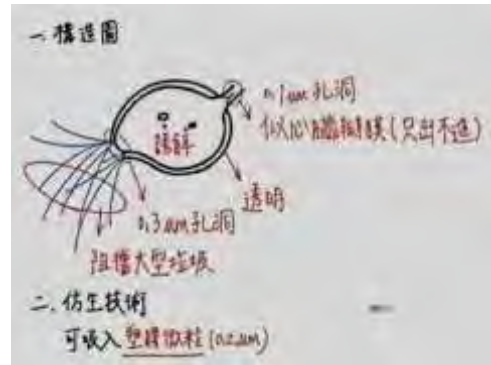 一、構造圖
0.1um孔洞
似心臟瓣膜(只出不進)
透明
0.3um孔洞
阻擋大型垃圾
二、仿生技術
可吸入塑膠微粒(0.2um)